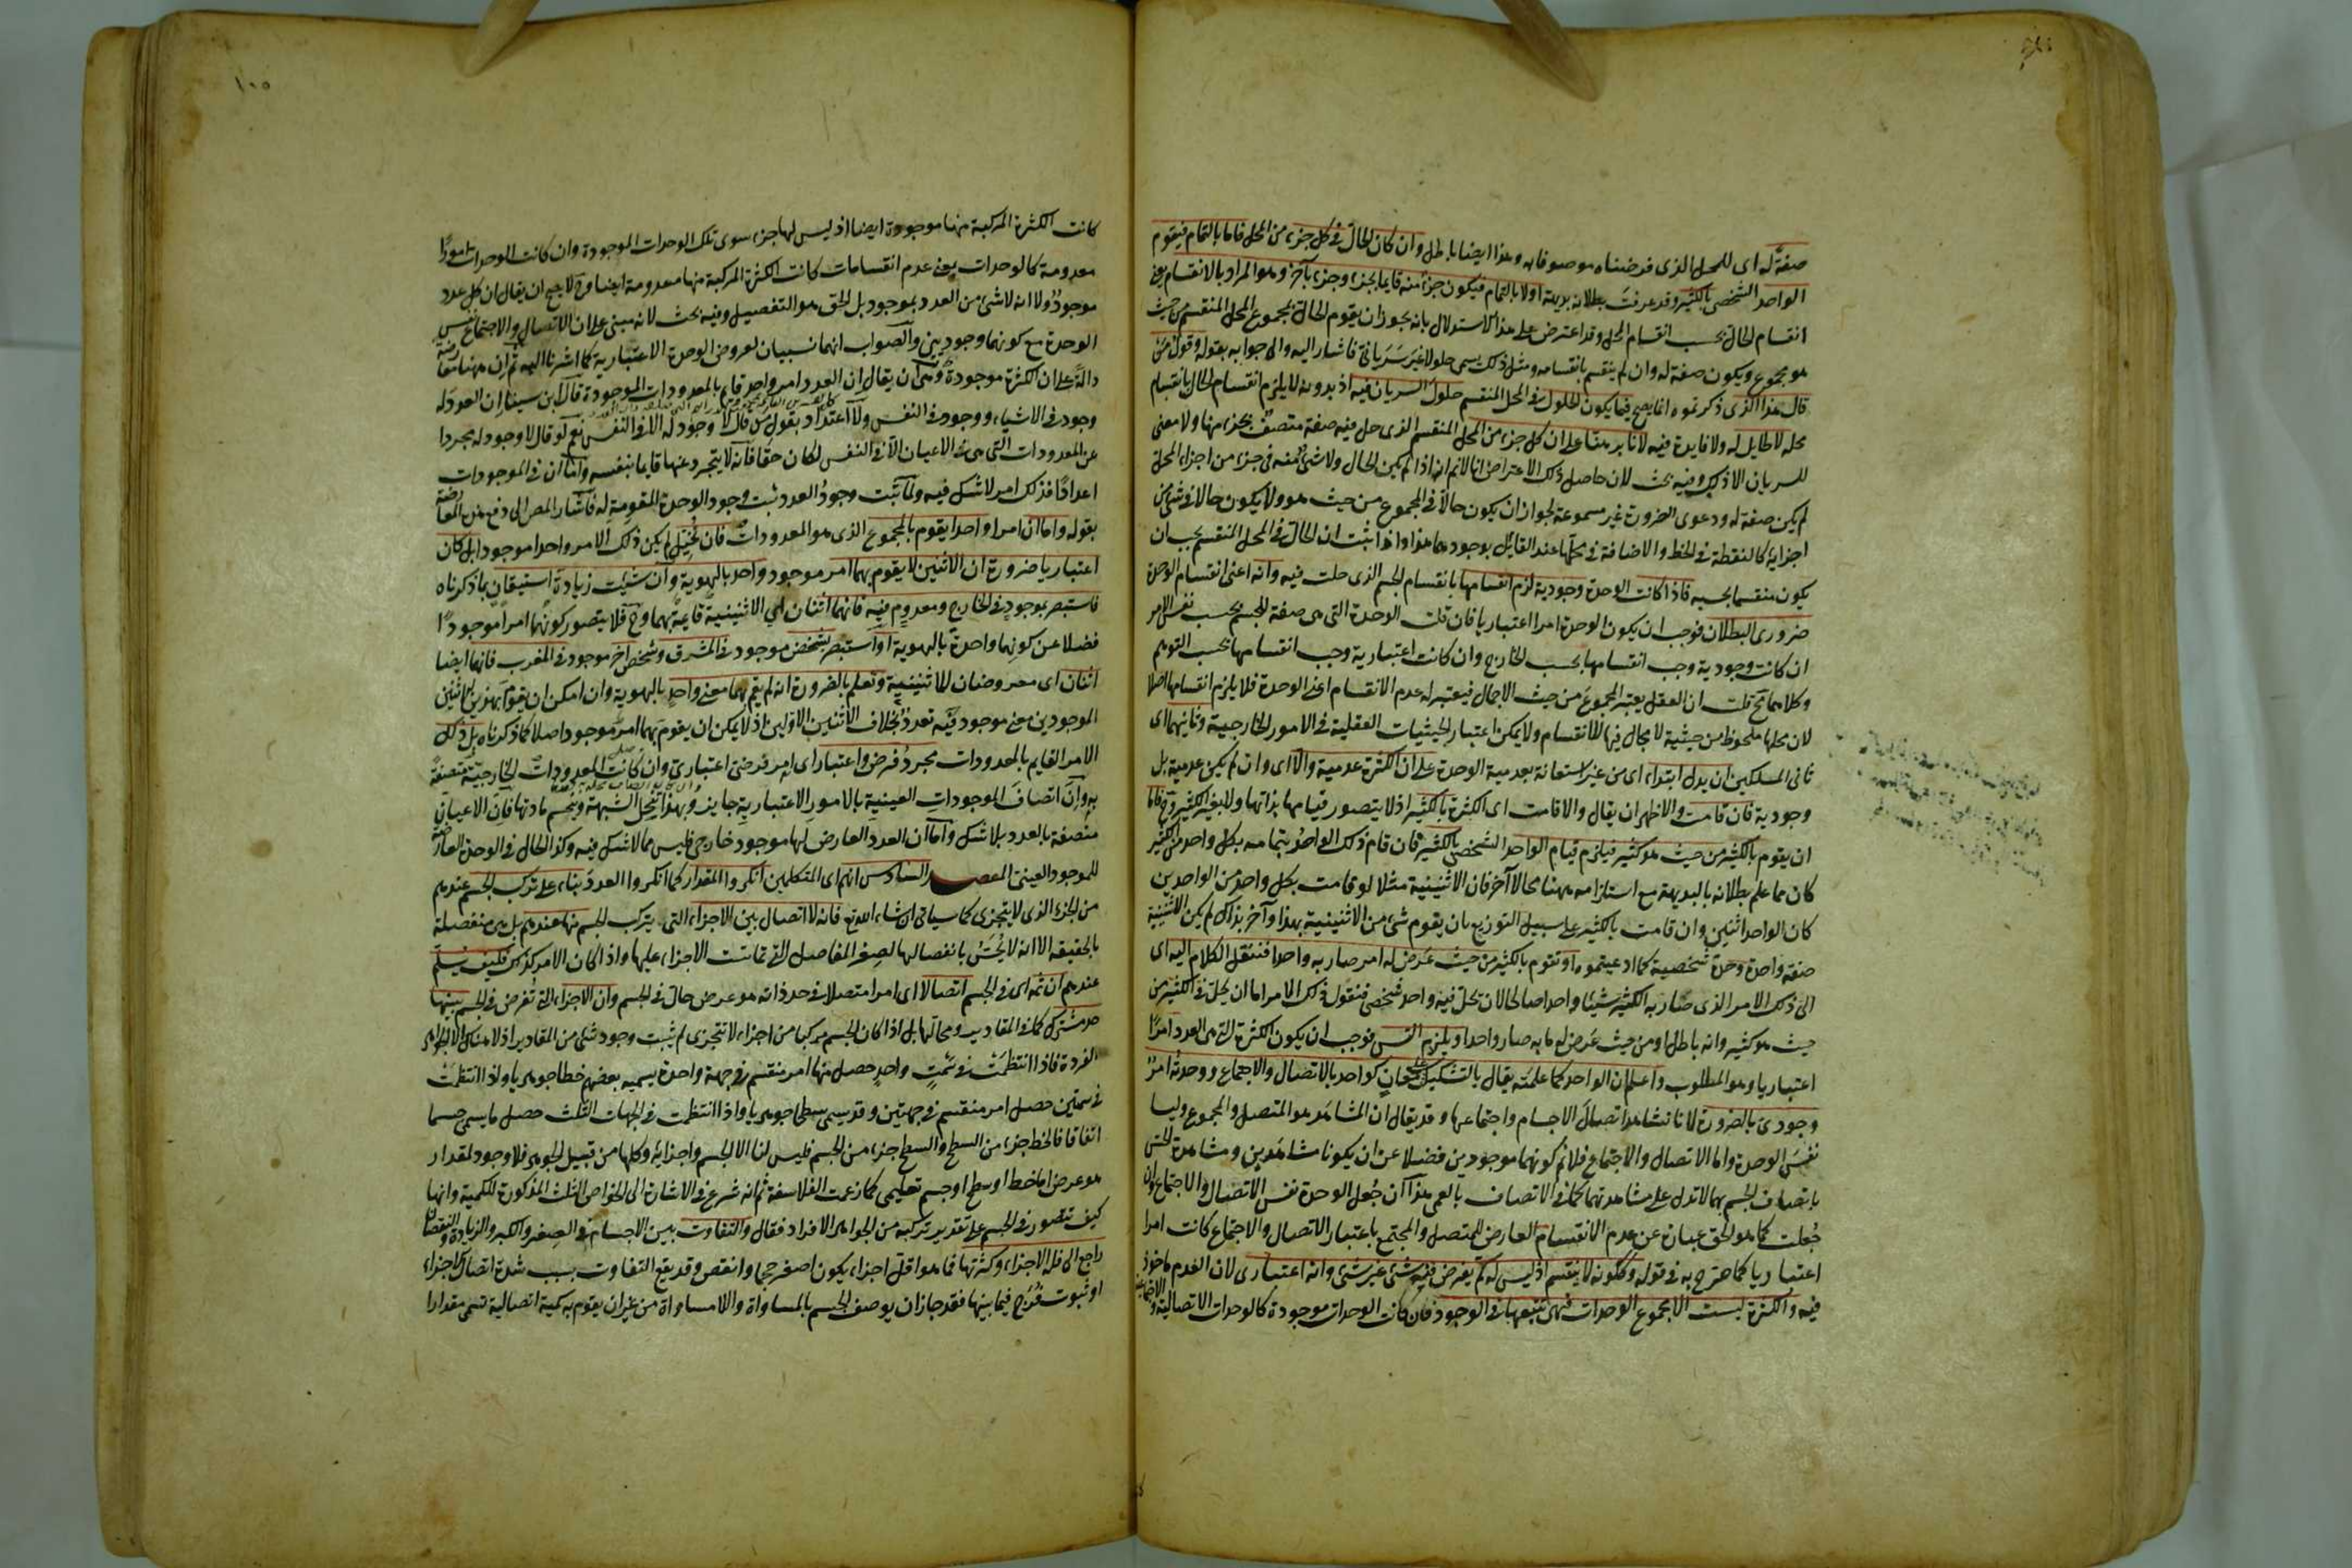 صفة له اى للمحل الذى فرضناه موصوفا به وهذا ايضا باطل وان كان الحال فى كل جزء من المحل فاما بالتمام فيقوم
الواحد الشخصى بالكثير وقد عرفت بطلانه بديهة اولا بالتمام فيكون جزء منه قايما بجزء وجزء بآخر وهو المراد بالانقسام يعنى
انقسام الحال بحسب انقسام المحل وقد اعترض على هذا الاستدلال بانه يجوز ان يقوم الحال بمجموع المحل المنقسم من حيث
هو مجموع ويكون صفة له وان لم ينقسم بانقسامه ومثل ذلك يسمى حلولا غير سريانى فاشار اليه والى جوابه بقوله وقول من
قال هذا الذى ذكرتموه انما يصح فيما يكون الحلول فى المحل المنقسم حلول السريان فيه اذ بدونه لا يلزم انقسام الحال بانقسام
محله لا طايل له ولا فايدة فيه لانا برهنا على ان كل جزء من المحل المنقسم الذى حل فيه صفة متصف بجزء منها ولا معنى
للسريان الا ذلك وفيه بحث لان حاصل ذلك الاعتراض انا لا نم انه اذا لم يكن الحال ولا شئ منه فى جزء من اجزاء المحل
لم يكن صفة له ودعوى الضرورة غير مسموعة لجواز ان يكون حالا فى المجموع من حيث هو ولا يكون حالا فى شئ من
اجزايه كالنقطة فى الخط والاضافة فى محلها عند القايل بوجودهما هذا واذا ثبت ان الحال فى المحل المنقسم يجب ان
يكون منقسما بحسبه فاذا كانت الوحدة وجودية لزم انقسامها بانقسام الجسم الذى حلت فيه وانه اعنى انقسام الوحدة
ضرورى البطلان فوجب ان يكون الوحدة امرا اعتباريا فان قلت الوحدة التى هى صفة للجسم بحسب نفس الامر
ان كانت وجودية وجب انقسامها بحسب الخارج وان كانت اعتبارية وجب انقسامها بحسب التوهم
وكلاهما مح قلت ان العقل يعتبر المجموع من حيث الاجمال فيعتبر له عدم الانقسام اعنى الوحدة فلا يلزم انقسامها اصلا
لان محلها ملحوظ من حيثية لا مجال فيها للانقسام ولا يمكن اعتبار الحيثيات العقلية فى الامور الخارجية وثانيهما اى
ثانى المسلكين ان يدل ابتداء اى من غير استعانة بعدمية الوحدة على ان الكثرة عدمية والا اى وان لم يكن عدمية بل
وجودية فان قامت والاظهر ان يقال والا قامت اى الكثرة بالكثير اذ لا يتصور قيامها بذاتها ولا بغير الكثير وح فاما
ان يقوم بالكثير من حيث هو كثير فيلزم قيام الواحد الشخصى بالكثير فان قام ذلك الواحد بتمامه بكل واحد من الكثير
كان مما علم بطلانه بالبديهة مع استلزامه ههنا محالا آخر فان الاثنينية مثلا لو قامت بكل واحد من الواحدين
كان الواحد اثنين وان قامت بالكثير على سبيل التوزيع بان يقوم شئ من الاثنينية بهذا وآخر بذاك لم يكن الاثنينية
صفة واحدة وحدة شخصية كما ادعيتموه او تقوم بالكثير من حيث عرض له امر صار به واحدا فننقل الكلام اليه اى
الى ذلك الامر الذى صار به الكثير شيئا واحدا صالحا لان يحل فيه واحد شخصى فنقول ذلك الامر اما ان يحل فى الكثير من
حيث هو كثير وانه باطل او من حيث عرض له ما به صار واحدا ويلزم التس فوجب ان يكون الكثرة التى هى العدد امرا
اعتباريا وهو المطلوب واعلم ان الواحد كما علمته يقال بالتشكيك على معان كواحد بالاتصال والاجتماع ووحدته امر
وجودى بالضرورة لانا نشاهد اتصال الاجسام واجتماعها وقد يقال ان المشاهد هو المتصل والمجموع وليسا
نفس الوحدة واما الاتصال والاجتماع فلا نم كونهما موجودين فضلا عن ان يكونا مشاهدين ومشاهدة الحس
باتصاف الجسم بهما لا تدل على مشاهدتهما كما فى الاتصاف بالعمى هذا ان جعل الوحدة نفس الاتصال والاجتماع وان
جعلت كما هو الحق عبارة عن عدم الانقسام العارض للمتصل والمجتمع باعتبار الاتصال والاجتماع كانت امرا
اعتباريا كما صرح به فى قوله وككونه لا ينقسم اذ ليس له يفرض فيه شئ غير شئ وانه اعتبارى لان العدم ماخوذ
فيه والكثرة ليست الا مجموع الوحدات فهى تتبعها فى الوجود فان كانت الوحدات موجودة كالوحدات الاتصالية والاجتماعية
١٠٥
كانت الكثرة المركبة منها موجودة ايضا اذ ليس لها جزء سوى تلك الوحدات الموجودة وان كانت الوحدات امورا
معدومة كالوحدات بمعنى عدم انقسامات كانت الكثرة المركبة منها معدومة ايضا وح لا يصح ان يقال ان كل عدد
موجود ولا انه لا شئ من العدد بموجود بل الحق هو التفصيل وفيه بحث لانه مبنى على ان الاتصال والاجتماع نفس
الوحدة مع كونهما وجوديين والصواب انهما سببان لعروض الوحدة الاعتبارية كما اشرنا اليه ثم ان ههنا معارضة
دالة على ان الكثرة موجودة وهى ان يقال ان العدد امر واحد قايم بالمعدودات الموجودة قال ابن سينا ان العدد له
وجود فى الاشياء ووجود فى النفس ولا اعتداد بقول من قال لا وجود له الا فى النفس نعم لو قال لا وجود له مجردا
عن المعدودات التى هى فى الاعيان الا فى النفس لكان حقا فانه لا يتجرد عنها قايما بنفسه واما ان فى الموجودات
اعدادا فذلك امر لا شك فيه ولما ثبت وجود العدد ثبت وجود الوحدة المقومة له فاشار المص الى دفع هذه المعارضة
بقوله واما ان امرا واحدا يقوم بالمجموع الذى هو المعدودات فان تخيل لم يكن ذلك الامر واحدا موجودا بل كان
اعتباريا ضرورة ان الاثنين لا يقوم بهما امر موجود واحد بالهوية وان شئت زيادة استيقان بما ذكرناه
فاستبصر بموجود فى الخارج ومعدوم فيه فانهما اثنان اى الاثنينية قايمة بهما وح فلا يتصور كونها امرا موجودا
فضلا عن كونها واحدة بالهوية او استبصر بشخص موجود فى المشرق وشخص آخر موجود فى المغرب فانهما ايضا
اثنان اى معروضان للاثنينية وتعلم بالضرورة انه لم يقم بهما معنى واحد بالهوية وان امكن ان يقوم بهذين الاثنين
الموجودين معنى موجود فيه تعدد بخلاف الاثنين الاولين اذ لا يمكن ان يقوم بهما امر موجود اصلا كما ذكرناه بل ذلك
الامر القايم بالمعدودات مجرد فرض واعتبار اى امر فرضى اعتبارى وان كانت المعدودات الخارجية متصفة
به وان اتصاف الموجودات العينية بالامور الاعتبارية جايز وبهذا تنحل الشبهة وتنحسم مادتها فان الاعيان
متصفة بالعدد بلا شك واما ان العدد العارض لها موجود خارجى فليس مما لا شك فيه وكذا الحال فى الوحدة العارضة
للموجود العينى المقصد السادس انهم اى المتكلمين انكروا المقدار كما انكروا العدد بناء على تركب الجسم عندهم
من الجزء الذى لا يتجزى كما سياتى ان شاء الله تع فانه لا اتصال بين الاجزاء التى يتركب الجسم منها عندهم بل هى منفصلة
بالحقيقة الا انه لا يحس بانفصالها لصغر المفاصل التى تماست الاجزاء عليها واذا كان الامر كذلك فكيف يسلم
عندهم ان ثمه اى فى الجسم اتصالا اى امرا متصلا فى حد ذاته هو عرض حال فى الجسم وان الاجزاء التى تفرض فى الجسم بينها
حد مشترك كما فى المقادير ومحالها بل اذا كان الجسم مركبا من اجزاء لا تتجزى لم يثبت وجود شئ من المقادير اذ لا هناك الا الجواهر
الفردة فاذا انتظمت فى سمت واحد حصل منها امر منقسم فى جهة واحدة يسميه بعضهم خطا جوهريا واذا انتظمت
فى سمتين حصل امر منقسم فى جهتين وقد يسمى سطحا جوهريا واذا انتظمت فى الجهات الثلث حصل ما يسمى جسما
اتفاقا فالخط جزء من السطح والسطح جزء من الجسم فليس لنا الا الجسم واجزاؤه وكلها من قبيل الجوهر فلا وجود لمقدار
هو عرض اما خط او سطح او جسم تعليمى كما زعمت الفلاسفة ثم انه شرع فى الاشارة الى الخواص الثلث المذكورة للكمية وانها
كيف تتصور فى الجسم على تقدير تركبه من الجواهر الافراد فقال والتفاوت بين الاجسام فى الصغر والكبر والزيادة والنقصان
راجع الى قلة الاجزاء وكثرتها فما هو اقل اجزاء يكون اصغر حجما وانقص وقد يقع التفاوت بسبب شدة اتصال الاجزاء
او ثبوت فرج فيما بينها فقد جاز ان يوصف الجسم بالمساواة واللامساواة من غير ان يقوم به كمية اتصالية تسمى مقدارا